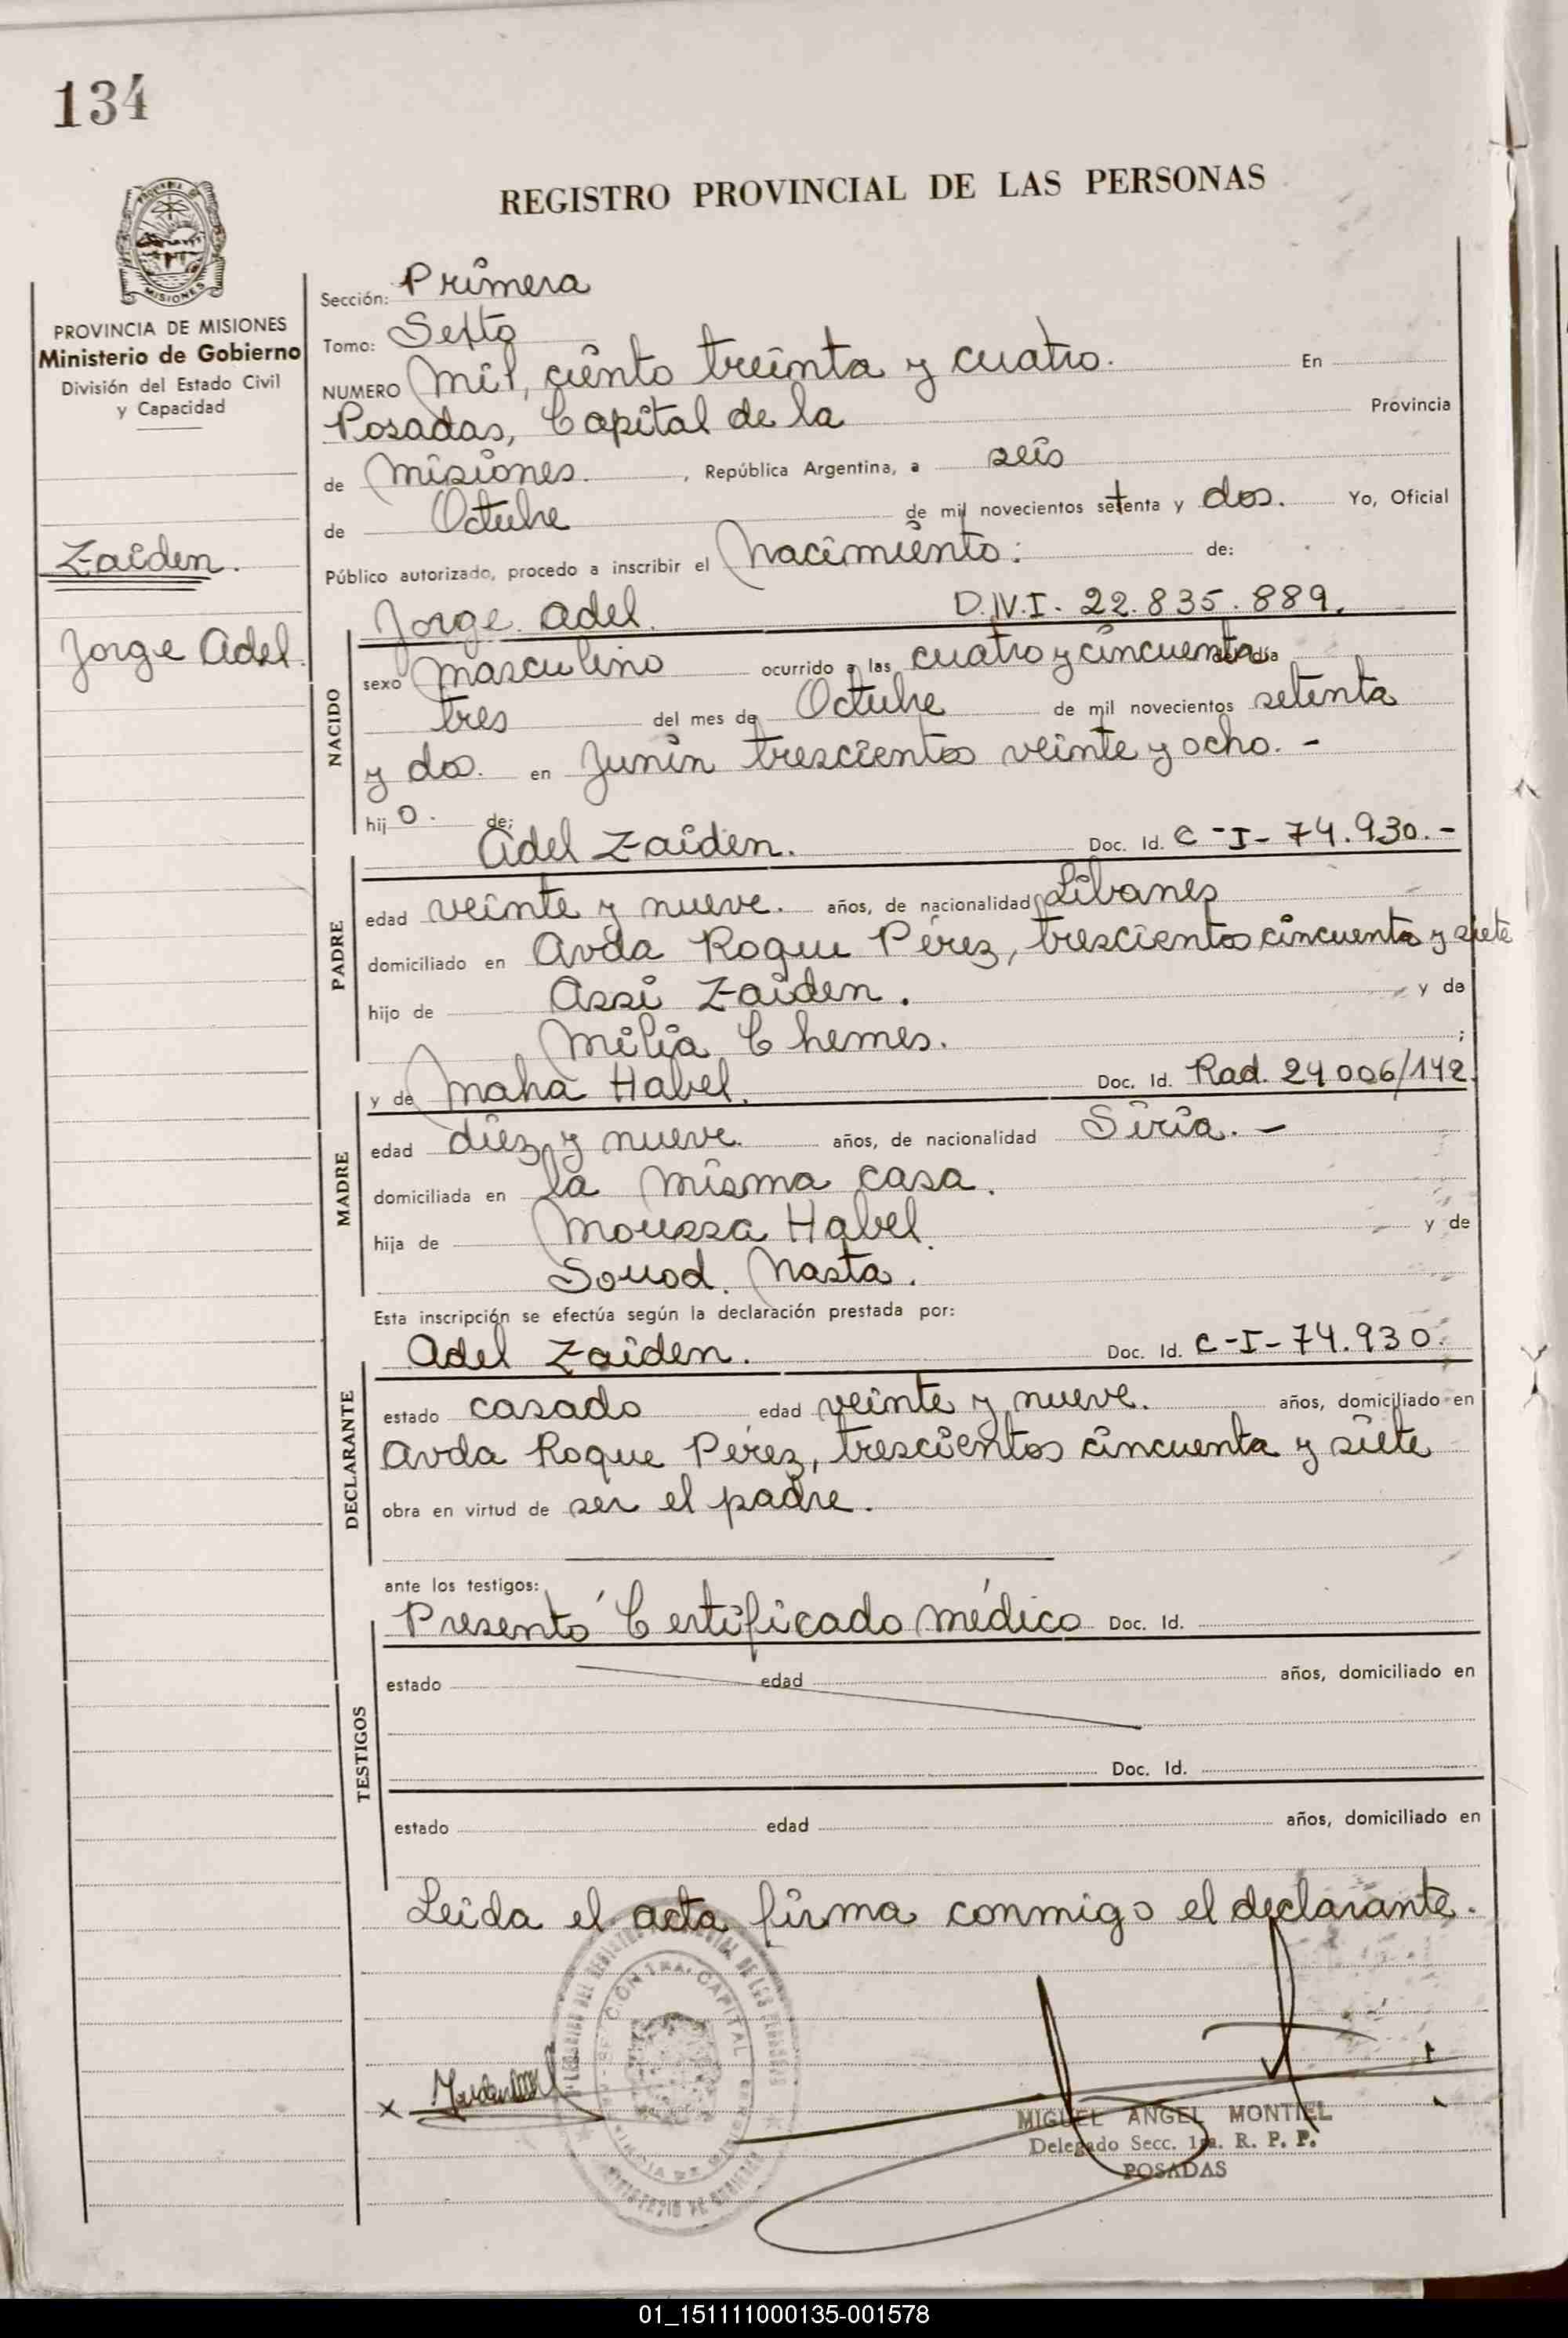 134
REGISTRO PROVINCIAL DE LAS PERSONAS
MISIONES
PROVINCIA DE MISIONES
Ministerio de Gobierno
División del Estado Civil
y Capacidad
Zaiden.
Jorge Adel.
Sección: Primera
Tomo: Sexto
NUMERO Mil, ciento treinta y cuatro. En
Posadas, Capital de la Provincia
de Misiones. , República Argentina, a seis
de Octubre de mil novecientos setenta y dos. Yo, Oficial
Público autorizado, procedo a inscribir el Nacimiento: de:
Jorge Adel. D.N.I. 22.835.889.
NACIDO
sexo Masculino ocurrido a las cuatro y cincuenta del día
tres del mes de Octubre de mil novecientos setenta
y dos. en Junín trescientos veinte y ocho. -
hij o. de;
Adel Zaiden. Doc. Id. C-I-74.930.-
PADRE
edad veinte y nueve. años, de nacionalidad Libanes
domiciliado en Avda Roque Pérez, trescientos cincuenta y siete
hijo de Assi Zaiden. y de
Milia Chemes. ;
y de Maha Habel. Doc. Id. Rad. 24006/142.
MADRE
edad diez y nueve. años, de nacionalidad Siria. -
domiciliada en la misma casa.
hija de Moussa Habel. y de
Souod. Nasta.
Esta inscripción se efectúa según la declaración prestada por:
Adel Zaiden. Doc. Id. C-I-74.930.
DECLARANTE
estado casado edad veinte y nueve. años, domiciliado en
Avda Roque Pérez, trescientos cincuenta y siete
obra en virtud de ser el padre.
ante los testigos:
Presentó Certificado médico Doc. Id.
TESTIGOS
estado edad años, domiciliado en
Doc. Id.
estado edad años, domiciliado en
Leida el acta firma conmigo el declarante.
x
MIGUEL ANGEL MONTIEL
Delegado Secc. 1ra. R. P. P.
POSADAS
01_151111000135-001578